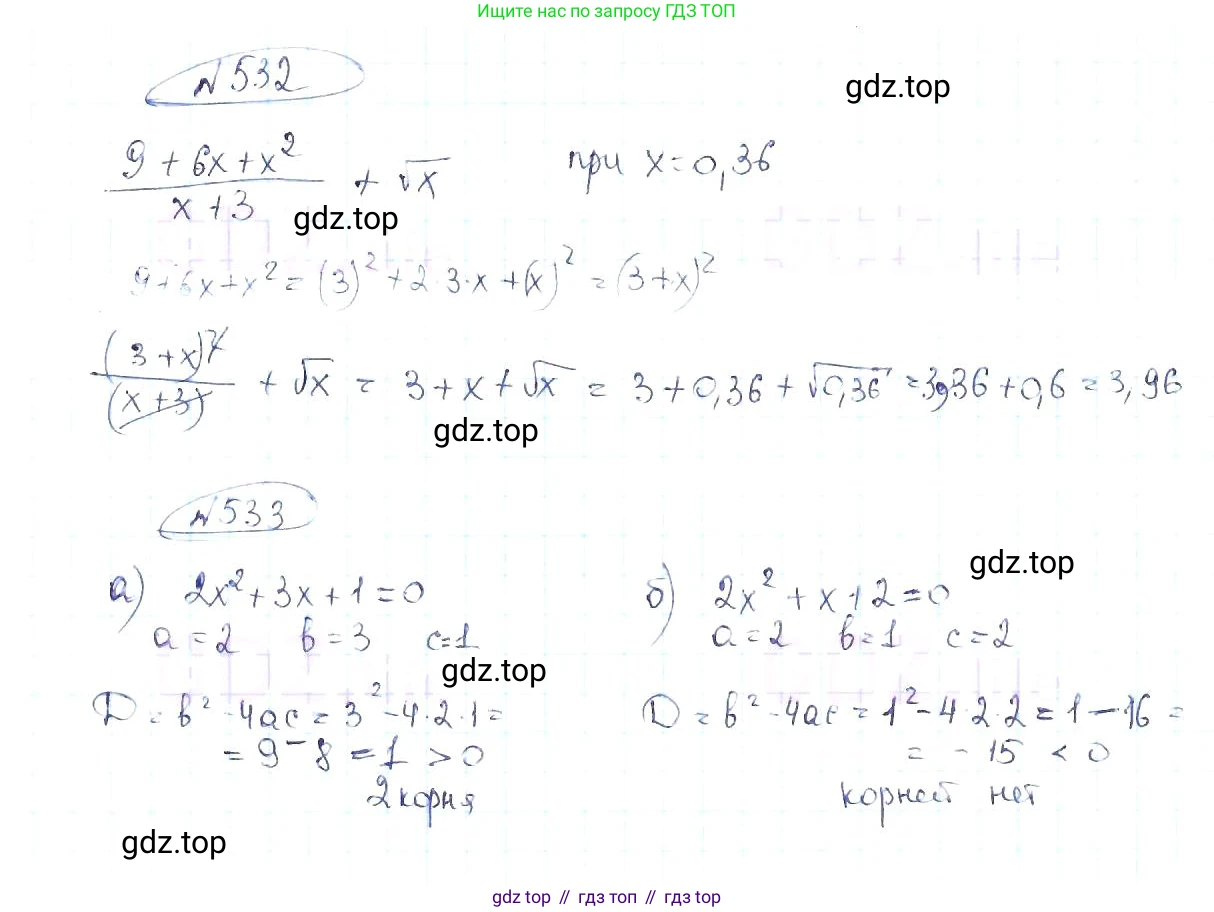 Ищите нас по запросу ГДЗ ТОП
№532
gdz.top
(9 + 6x + x²)/(x + 3) + √x при x = 0,36
gdz.top
9 + 6x + x² = (3)² + 2·3·x + (x)² = (3 + x)²
(3 + x)²/(x + 3) + √x = 3 + x + √x = 3 + 0,36 + √0,36 = 3,36 + 0,6 = 3,96
gdz.top
№533
gdz.top
а) 2x² + 3x + 1 = 0
a = 2 b = 3 c = 1
gdz.top
D = b² - 4ac = 3² - 4·2·1 =
= 9 - 8 = 1 > 0
2 корня
б) 2x² + x + 2 = 0
a = 2 b = 1 c = 2
D = b² - 4ac = 1² - 4·2·2 = 1 - 16 =
= - 15 < 0
корней нет
gdz.top
gdz top // гдз топ // gdz top